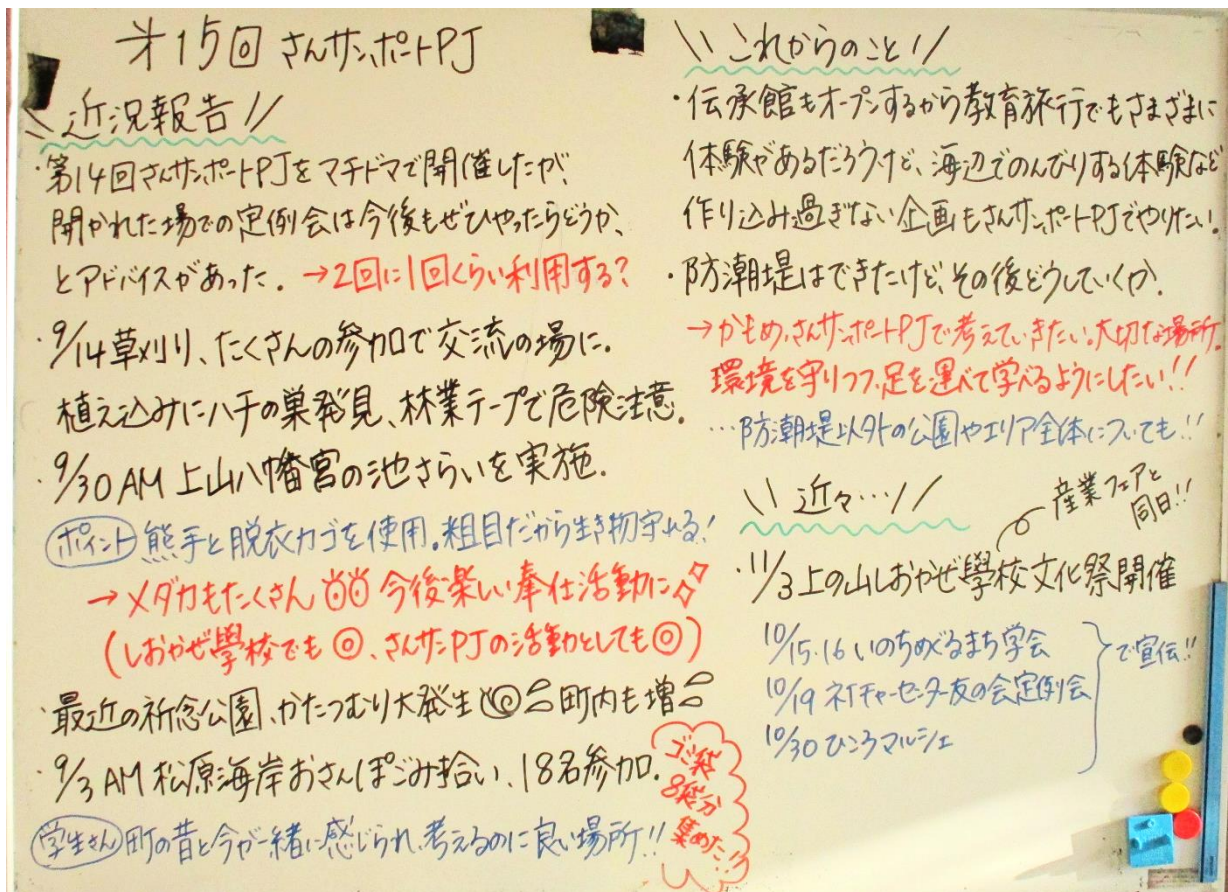 才15回 さんサンポートPJ
\ 近況報告 //
・第14回さんサンポートPJをマチドマで開催したが、
開かれた場での定例会は今後もぜひやったらどうか、
とアドバイスがあった。→2回に1回くらい利用する?
・9/14 草刈り、たくさんの参加で交流の場に。
植え込みにハチの巣発見、林業テープで危険注意。
・9/30 AM 上山八幡宮の池さらいを実施。
ポイント 熊手と脱衣カゴを使用。粗目だから生き物守れる!
→メダカもたくさん 今後楽しい奉仕活動に
(しおかぜ學校でも◎、さんサンPJの活動としても◎)
・最近の祈念公園、かたつむり大発生 町内も増
・9/3 AM 松原海岸おさんぽごみ拾い、18名参加。
ゴミ袋
8袋分
集めた!!
学生さん 町の昔と今が一緒に感じられ、考えるのに良い場所!!
\\ これからのこと //
・伝承館もオープンするから教育旅行でもさまざまに
体験があるだろうけど、海辺でのんびりする体験など
作り込み過ぎない企画もさんサンポートPJでやりたい。
・防潮堤はできたけど、その後どうしていくか。
→かもめ、さんサンポートPJで考えていきたい。大切な場所。
環境を守りつつ、足を運べて学べるようにしたい!!
…防潮堤以外の公園やエリア全体についても!!
\\ 近々… //
産業フェアと
同日!!
・11/3 上の山しおかぜ學校文化祭開催
10/15.16 いのちめぐるまち学会
10/19 ネイチャーセンター友の会定例会
10/30 ひころマルシェ
で宣伝!!